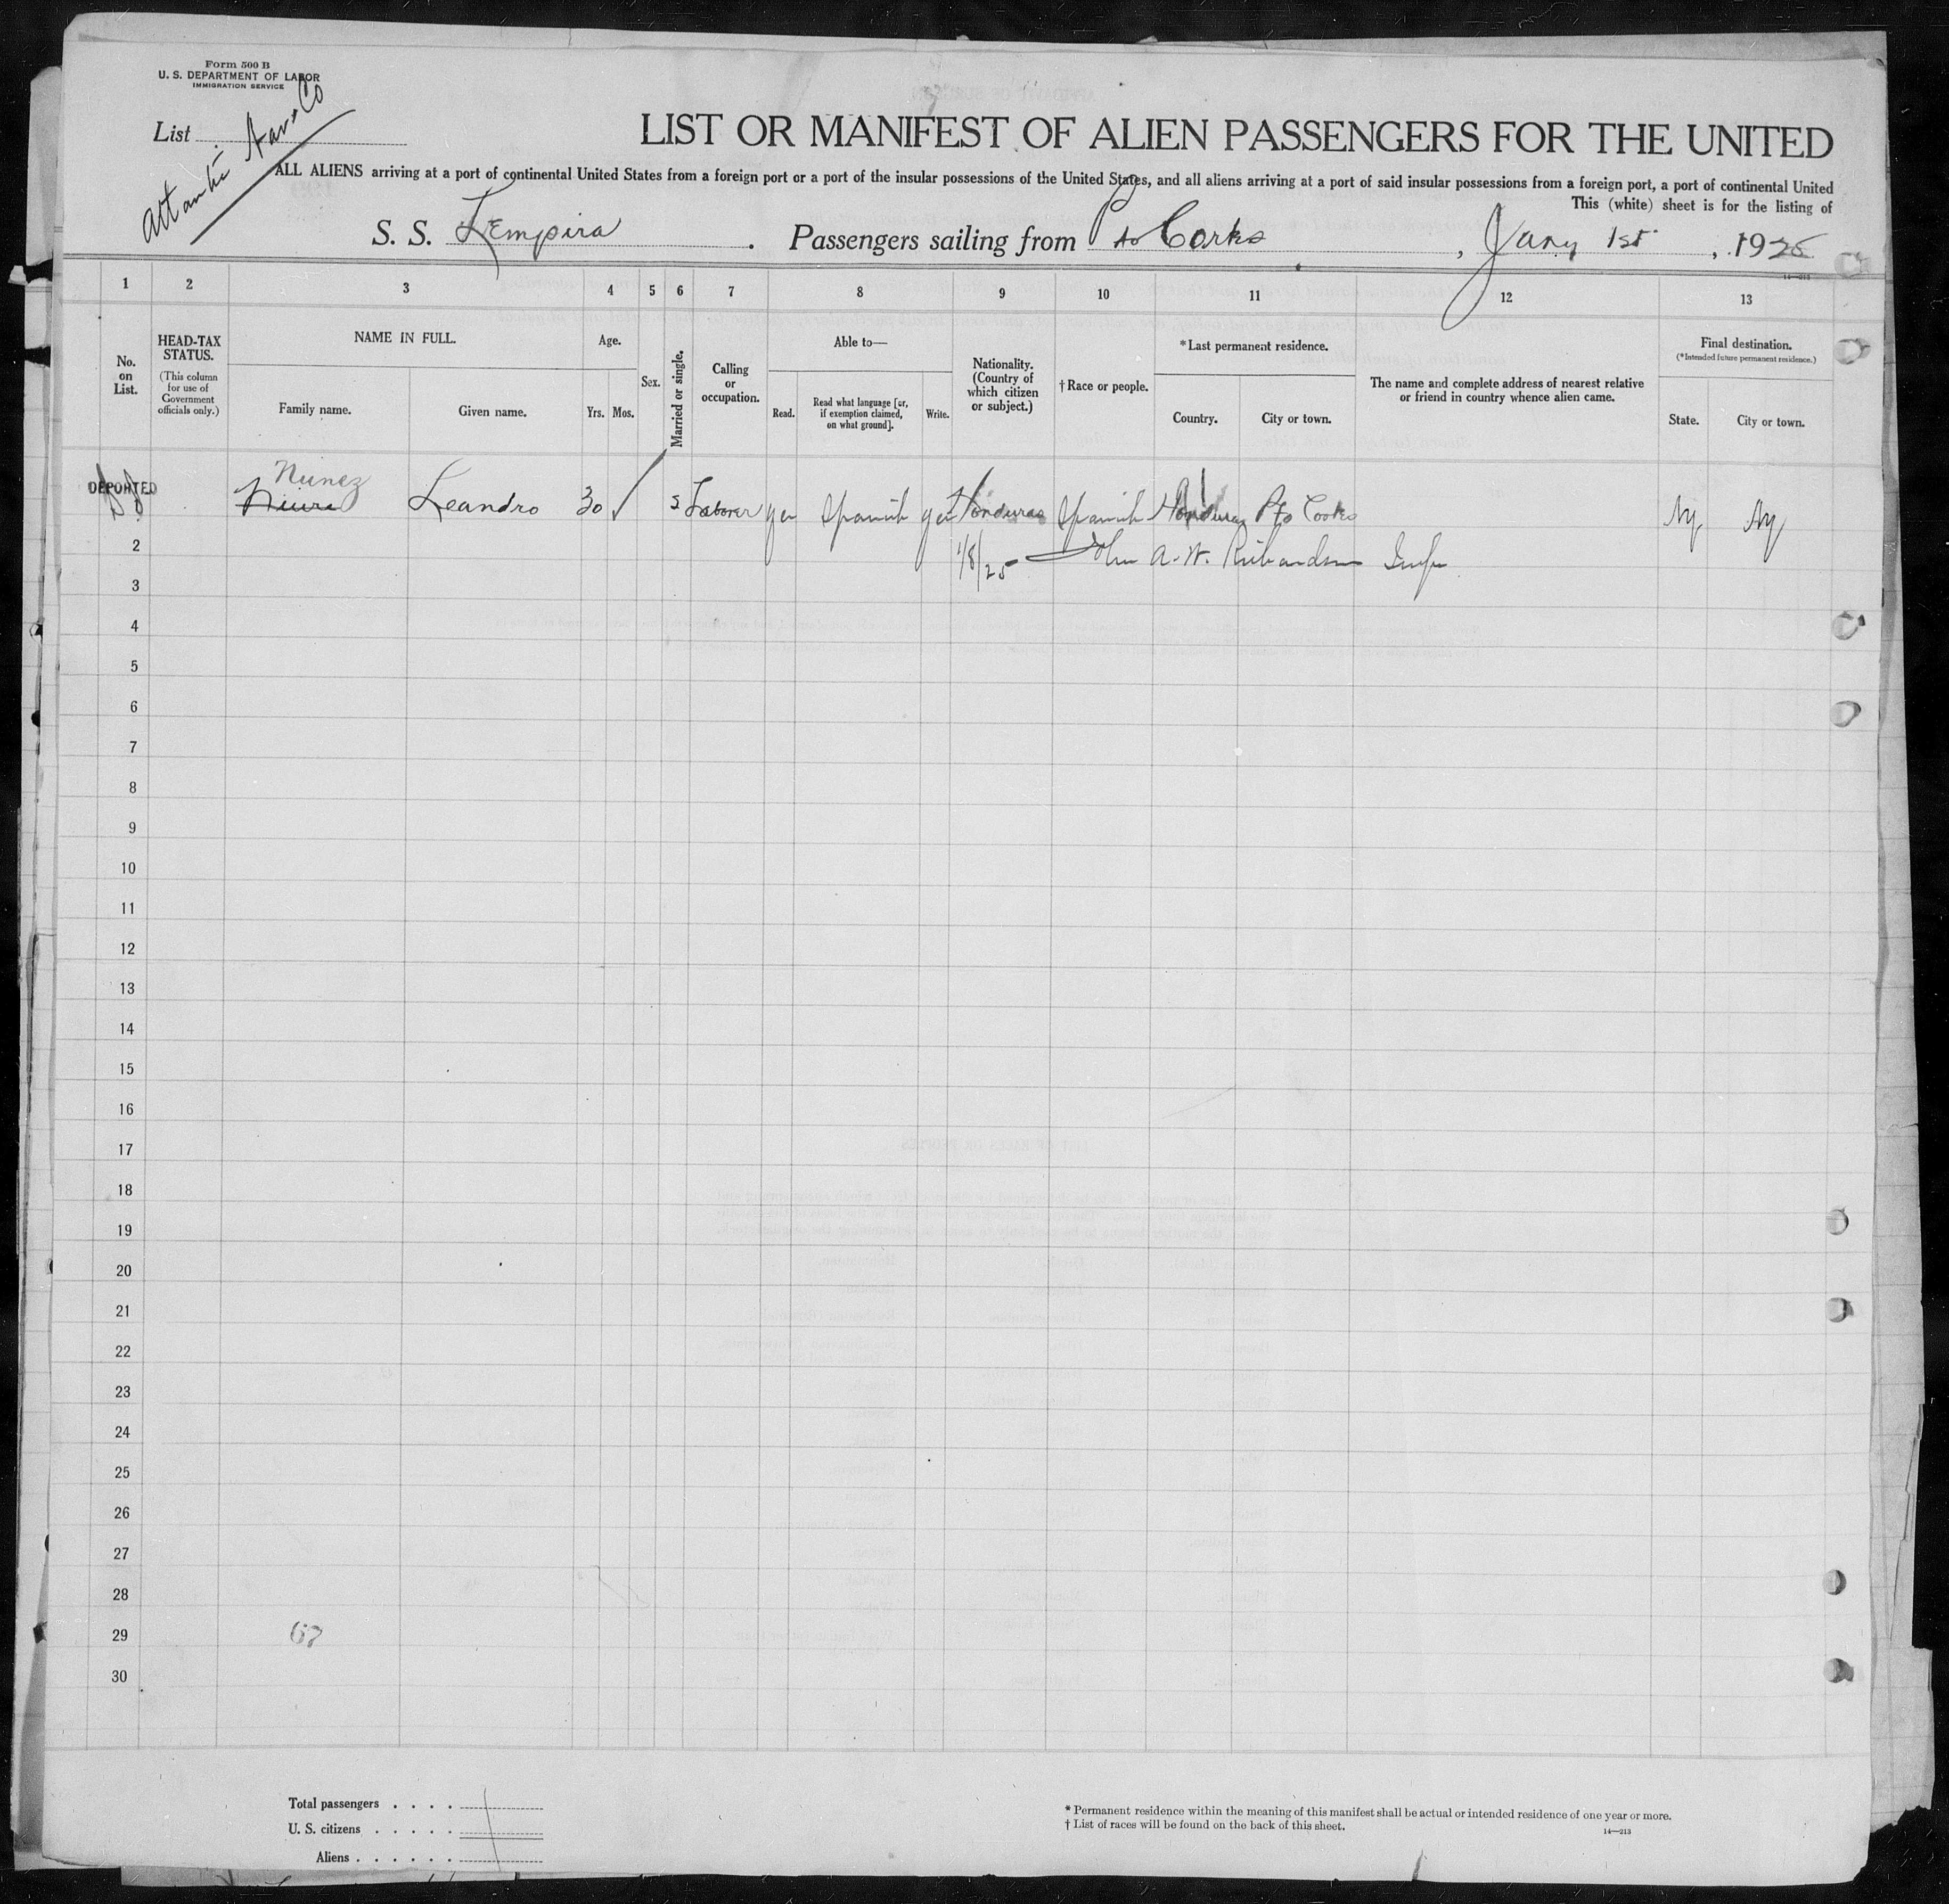 Form 500 B
U. S. DEPARTMENT OF LABOR
IMMIGRATION SERVICE
List
LIST OR MANIFEST OF ALIEN PASSENGERS FOR THE UNITED
ALL ALIENS arriving at a port of continental United States from a foreign port or a port of the insular possessions of the United States, and all aliens arriving at a port of said insular possessions from a foreign port, a port of continental United
This (white) sheet is for the listing of
S. S. Lempira . Passengers sailing from Pto Cortes , Jany 1st , 1925
14—213
1 2 3 4 5 6 7 8 9 10 11 12 13
No. on List.
HEAD-TAX STATUS.
(This column for use of Government officials only.)
NAME IN FULL.
Family name.
Given name.
Age.
Yrs. Mos.
Sex.
Married or single.
Calling or occupation.
Able to—
Read.
Read what language [or, if exemption claimed, on what ground].
Write.
Nationality. (Country of which citizen or subject.)
† Race or people.
*Last permanent residence.
Country.
City or town.
The name and complete address of nearest relative or friend in country whence alien came.
Final destination.
(*Intended future permanent residence.)
State.
City or town.
Nunez
DEPORTED Leandro 30 S Laborer yes Spanish yes Honduras Spanish Honduras Pto Cortes Ny Ny
2
1/8/25 John A. W. Richardson Insp
3
4
5
6
7
8
9
10
11
12
13
14
15
16
17
18
19
20
21
22
23
24
25
26
27
28
29 67
30
Total passengers . . . .
U. S. citizens . . . . .
Aliens . . . . . .
* Permanent residence within the meaning of this manifest shall be actual or intended residence of one year or more.
† List of races will be found on the back of this sheet.
14—213